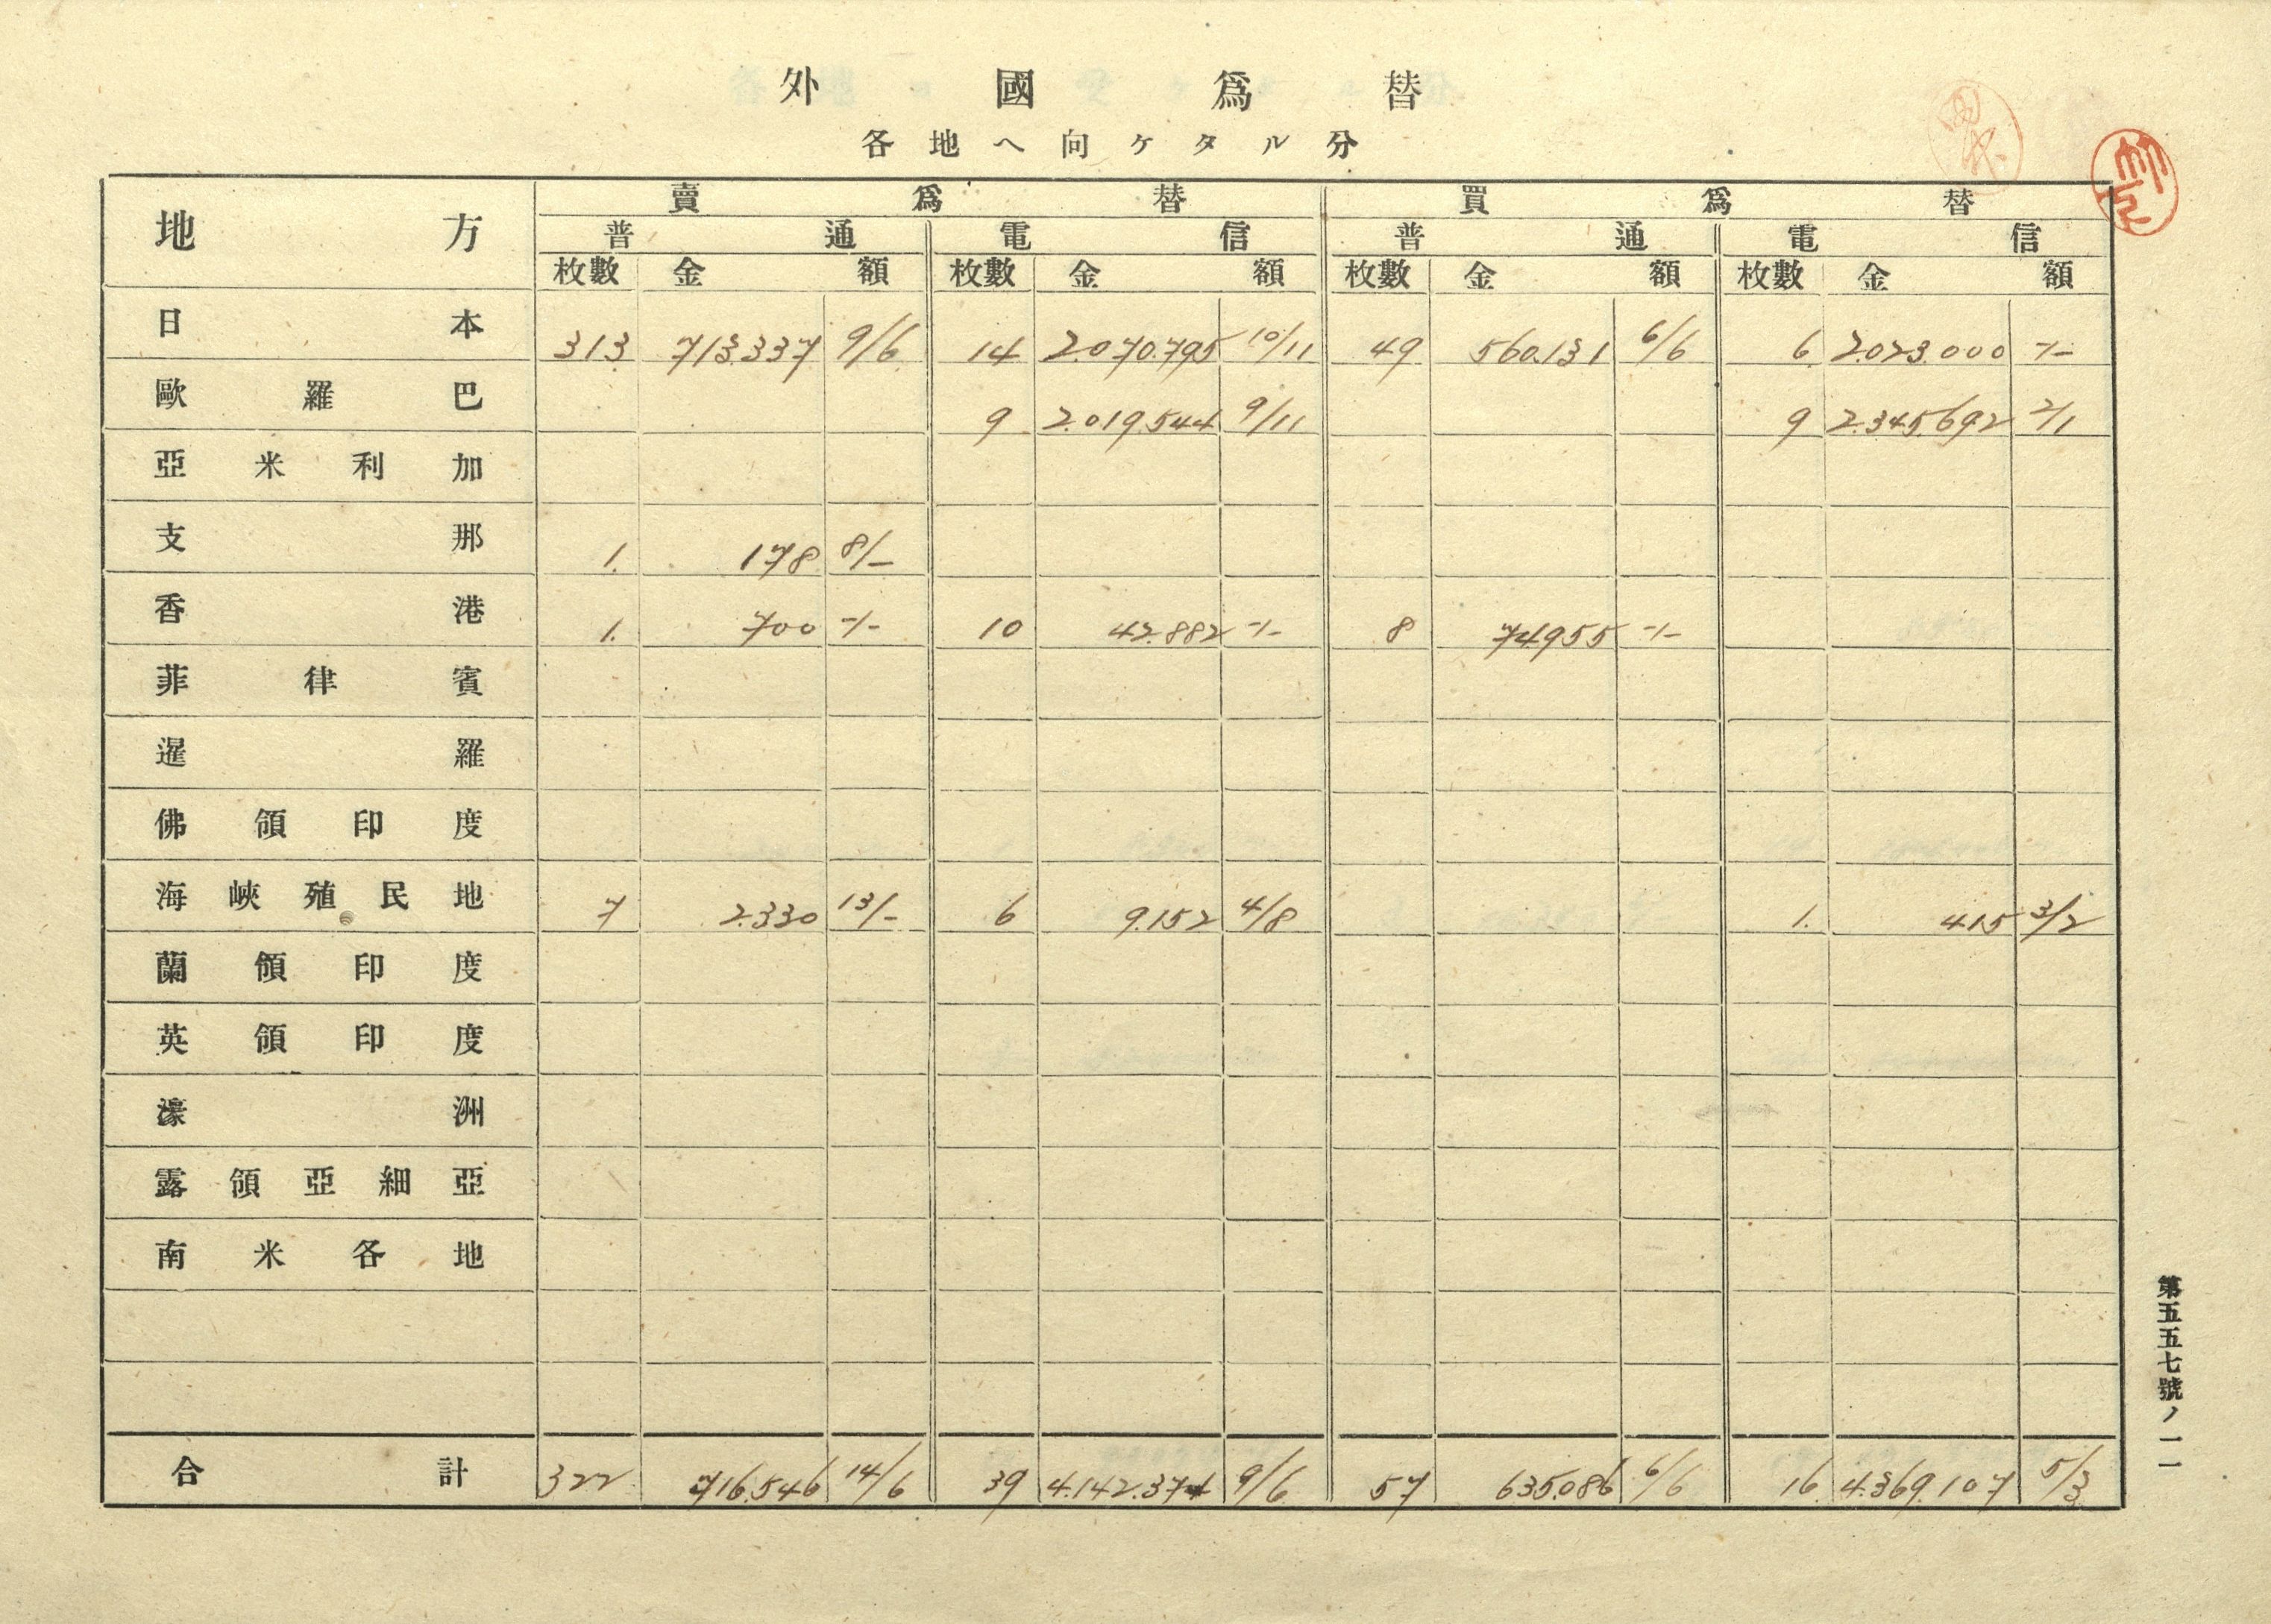 外國爲替
各地へ向ケタル分
地方 賣爲替 買爲替
普通 電信 普通 電信
枚數 金額 枚數 金額 枚數 金額 枚數 金額
日本 313 713.337 9/6 14 2.070.795 10/11 49 560.131 6/6 6 2.023.000 -/-
歐羅巴 9 2.019.544 9/11 9 2.345.692 2/1
亞米利加
支那 1. 178 8/-
香港 1. 700 -/- 10 42.882 -/- 8 74.955 -/-
菲律賓
暹羅
佛領印度
海峽殖民地 7 2.330 13/- 6 9.152 4/8 1. 415 3/2
蘭領印度
英領印度
濠洲
露領亞細亞
南米各地
合計 322 716.546 14/6 39 4.142.374 9/6 57 635.086 6/6 16 4.369.107 5/3
第五五七號ノ一一